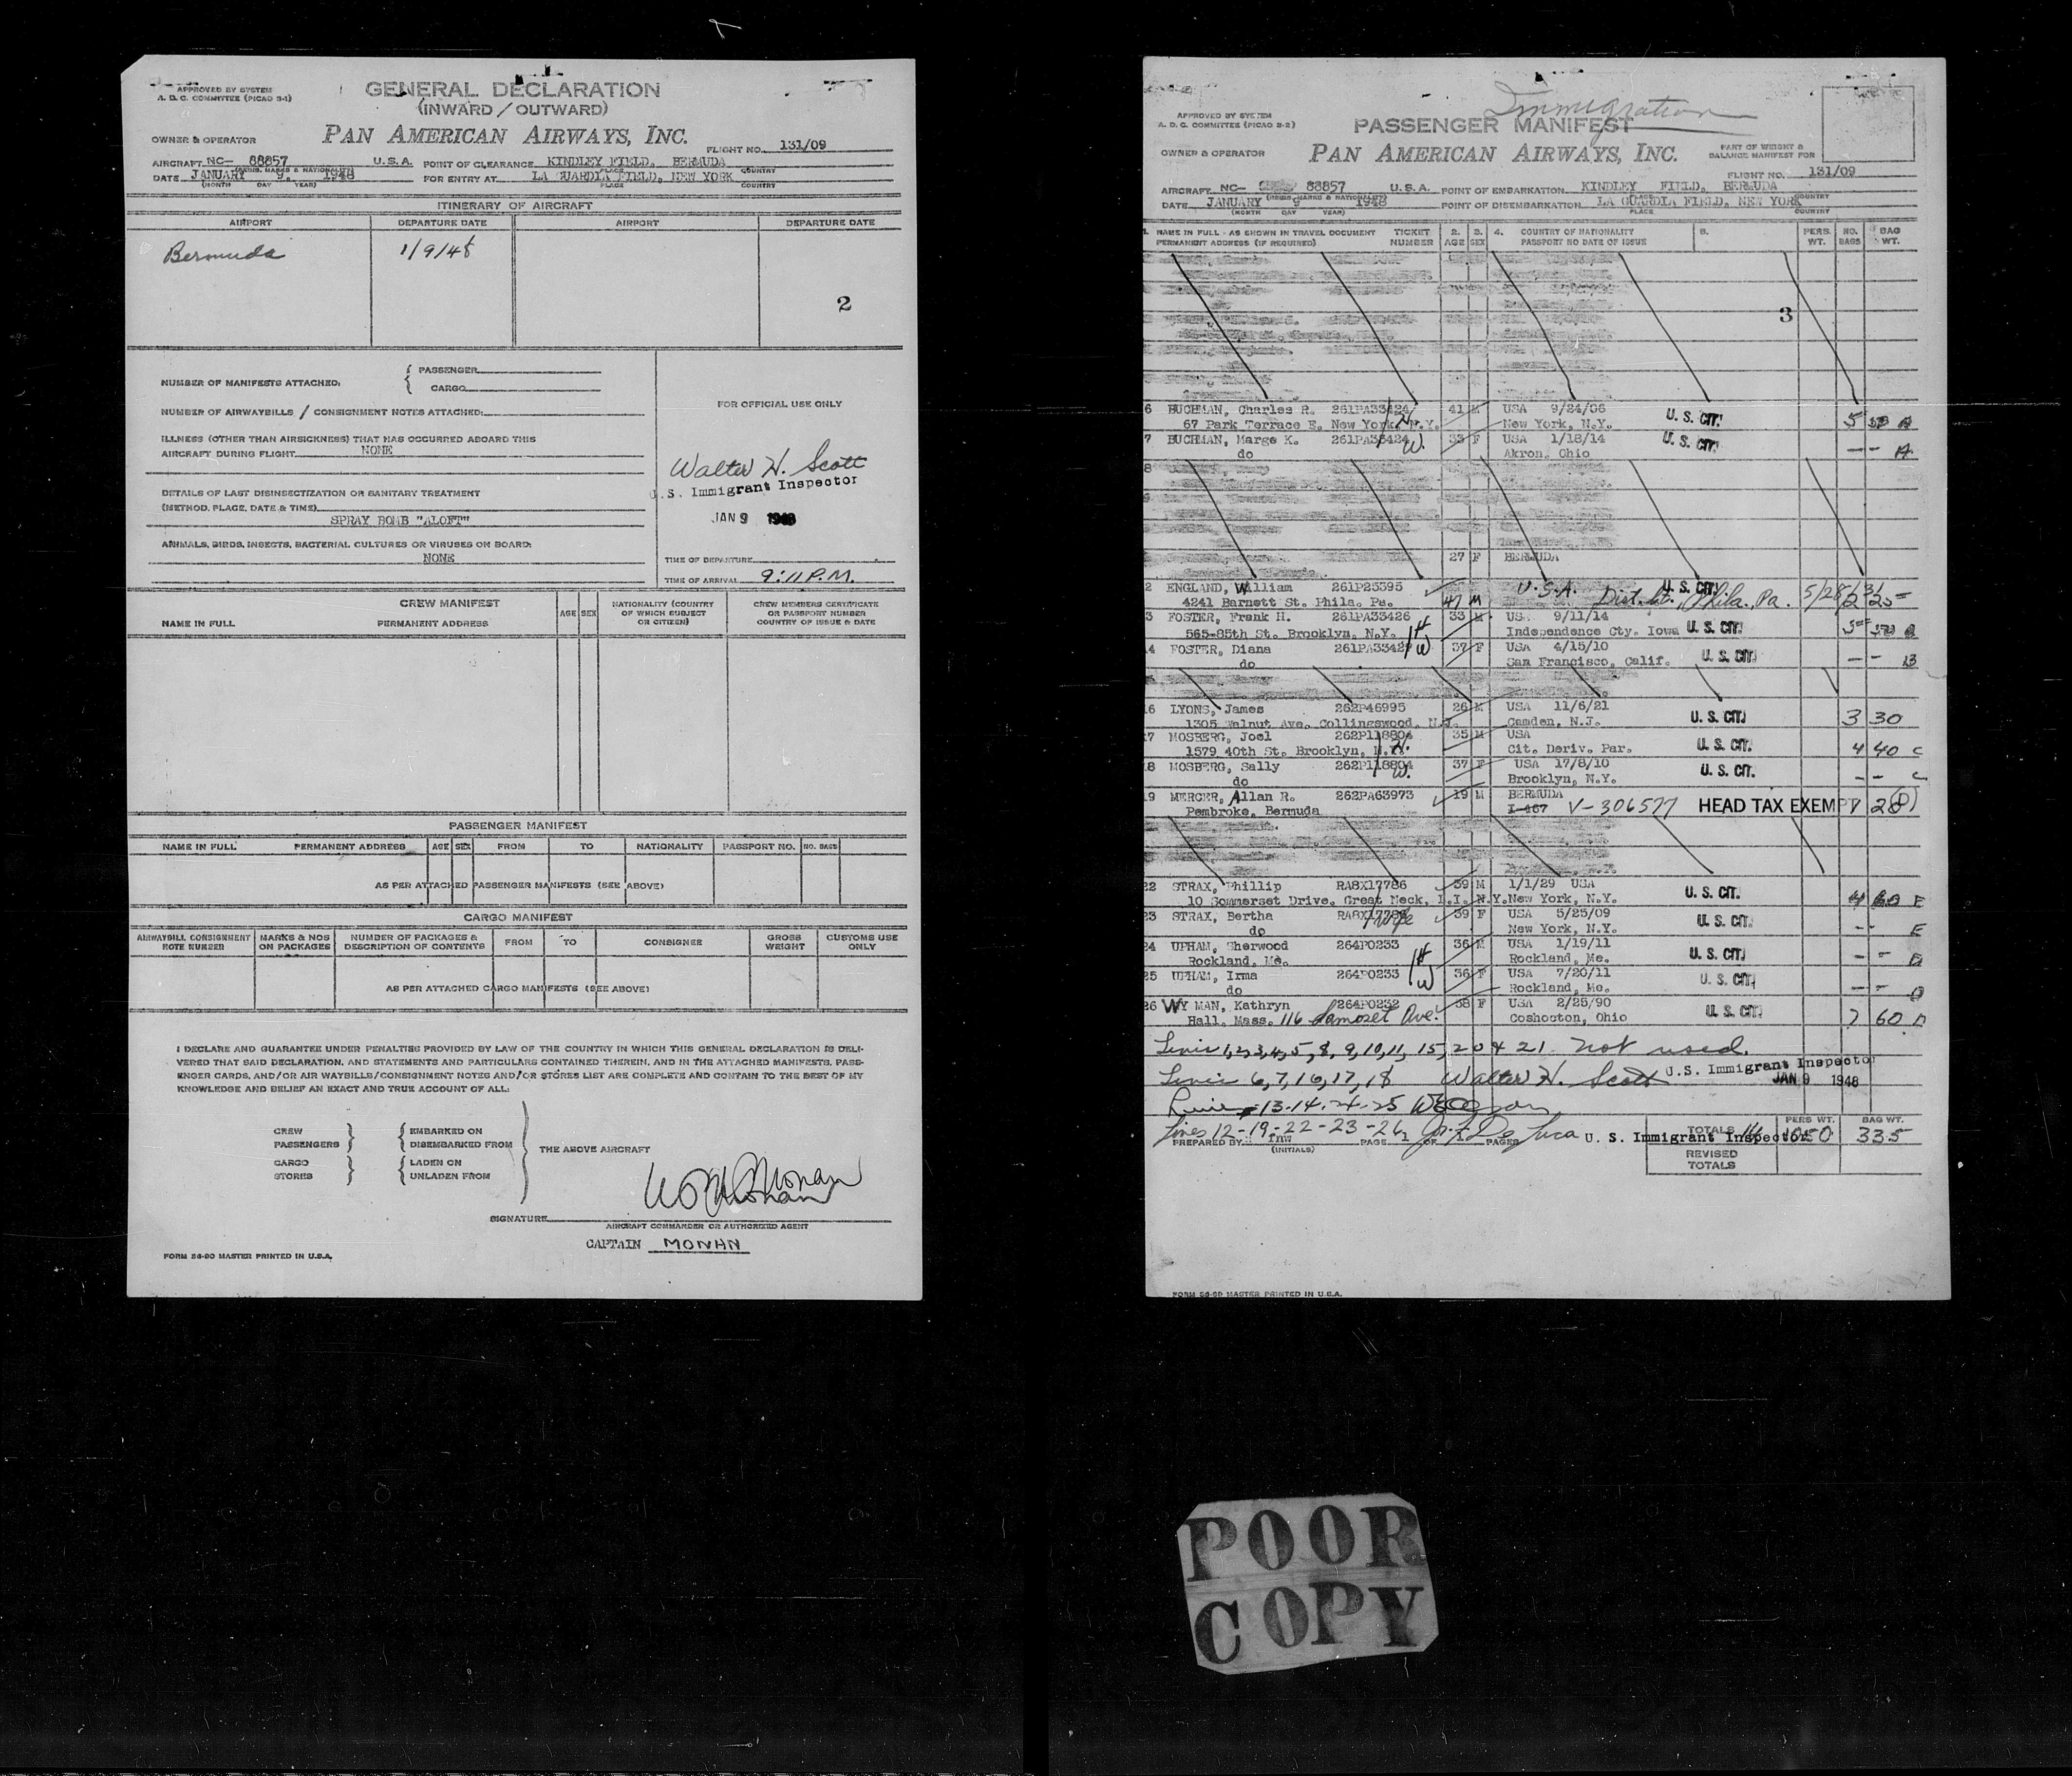 APPROVED BY SYSTEM
A. D. C. COMMITTEE (PICAO B-1)
GENERAL DECLARATION
(INWARD / OUTWARD)
OWNER & OPERATOR PAN AMERICAN AIRWAYS, INC. FLIGHT NO. 131/09
AIRCRAFT NC- 88857 U.S.A. POINT OF CLEARANCE KINDLEY FIELD, BERMUDA
DATE JANUARY 9, 1948 FOR ENTRY AT LA GUARDIA FIELD, NEW YORK
(MONTH DAY YEAR) PLACE COUNTRY
ITINERARY OF AIRCRAFT
AIRPORT DEPARTURE DATE AIRPORT DEPARTURE DATE
Bermuda 1/9/48
2
NUMBER OF MANIFESTS ATTACHED: { PASSENGER
CARGO
NUMBER OF AIRWAYBILLS / CONSIGNMENT NOTES ATTACHED:
ILLNESS (OTHER THAN AIRSICKNESS) THAT HAS OCCURRED ABOARD THIS
AIRCRAFT DURING FLIGHT NONE
DETAILS OF LAST DISINSECTIZATION OR SANITARY TREATMENT
(METHOD, PLACE, DATE & TIME)
SPRAY BOMB "ALOFT"
ANIMALS, BIRDS, INSECTS, BACTERIAL CULTURES OR VIRUSES ON BOARD:
NONE
FOR OFFICIAL USE ONLY
Walter H. Scott
U. S. Immigrant Inspector
JAN 9 1948
TIME OF DEPARTURE
TIME OF ARRIVAL 9:11 P.M.
CREW MANIFEST
NAME IN FULL PERMANENT ADDRESS AGE SEX NATIONALITY (COUNTRY OF WHICH SUBJECT OR CITIZEN) CREW MEMBERS CERTIFICATE OR PASSPORT NUMBER COUNTRY OF ISSUE & DATE
PASSENGER MANIFEST
NAME IN FULL PERMANENT ADDRESS AGE SEX FROM TO NATIONALITY PASSPORT NO. NO. BAGS
AS PER ATTACHED PASSENGER MANIFESTS (SEE ABOVE)
CARGO MANIFEST
AIRWAYBILL CONSIGNMENT NOTE NUMBER MARKS & NOS ON PACKAGES NUMBER OF PACKAGES & DESCRIPTION OF CONTENTS FROM TO CONSIGNEE GROSS WEIGHT CUSTOMS USE ONLY
AS PER ATTACHED CARGO MANIFESTS (SEE ABOVE)
I DECLARE AND GUARANTEE UNDER PENALTIES PROVIDED BY LAW OF THE COUNTRY IN WHICH THIS GENERAL DECLARATION IS DELI-
VERED THAT SAID DECLARATION, AND STATEMENTS AND PARTICULARS CONTAINED THEREIN, AND IN THE ATTACHED MANIFESTS, PASS-
ENGER CARDS, AND/OR AIR WAYBILLS/CONSIGNMENT NOTES AND/OR STORES LIST ARE COMPLETE AND CONTAIN TO THE BEST OF MY
KNOWLEDGE AND BELIEF AN EXACT AND TRUE ACCOUNT OF ALL:
CREW EMBARKED ON
PASSENGERS DISEMBARKED FROM
THE ABOVE AIRCRAFT
CARGO LADEN ON
STORES UNLADEN FROM
SIGNATURE
AIRCRAFT COMMANDER OR AUTHORIZED AGENT
CAPTAIN MONAN
FORM 36-90 MASTER PRINTED IN U.S.A.
Immigration
APPROVED BY SYSTEM
A. D. C. COMMITTEE (PICAO B-2)
PASSENGER MANIFEST
OWNER & OPERATOR PAN AMERICAN AIRWAYS, INC. PART OF WEIGHT & BALANCE MANIFEST FOR
FLIGHT NO. 131/09
AIRCRAFT NC- 88857 U.S.A. POINT OF EMBARKATION KINDLEY FIELD, BERMUDA
DATE JANUARY 9 1948 POINT OF DISEMBARKATION LA GUARDIA FIELD, NEW YORK
(MONTH DAY YEAR) PLACE COUNTRY
1. NAME IN FULL - AS SHOWN IN TRAVEL DOCUMENT TICKET 2. 3. 4. COUNTRY OF NATIONALITY 5. PERS. NO. BAG
PERMANENT ADDRESS (IF REQUIRED) NUMBER AGE SEX PASSPORT NO DATE OF ISSUE WT. BAGS WT.
3
6 BUCHMAN, Charles R. 261PA33424 H. 41 M USA 9/24/06 U. S. CIT. 5
67 Park Terrace E. New York, N.Y. New York, N.Y.
7 BUCHMAN, Marge K. 261PA33424 W. 33 F USA 1/18/14 U. S. CIT. — — A
do Akron, Ohio
8
27 F BERMUDA
2 ENGLAND, William 261P25395 U.S.A. U. S. CIT.
4241 Barnett St. Phila. Pa. 47 M Dist. Ct., Phila., Pa.
3 FOSTER, Frank H. 261PA33426 H 33 M USA 9/11/14
565-85th St. Brooklyn, N.Y. Independence Cty. Iowa U. S. CIT.
4 FOSTER, Diana W 37 F USA 4/15/10 U. S. CIT. — — B
do San Francisco, Calif.
6 LYONS, James 262P46995 26 M USA 11/6/21 U. S. CIT. 3 30
1305 Walnut Ave. Collingswood, N.J. Camden, N.J.
7 MOSBERG, Joel 262P118804 H. 35 M USA U. S. CIT. 4 40 C
1579 40th St. Brooklyn, N.Y. Cit. Deriv. Par.
8 MOSBERG, Sally 262P118804 W. 37 F USA 17/8/10 U. S. CIT. — — C
do Brooklyn, N.Y.
9 MERCER, Allan R. 262PA63973 19 M BERMUDA
Pembroke, Bermuda I-467 V-306577 HEAD TAX EXEMPT
22 STRAX, Phillip RA8X17786 39 M 1/1/29 USA U. S. CIT. 4 E
10 Sommerset Drive, Great Neck, L.I. N.Y. New York, N.Y.
23 STRAX, Bertha RA8X17786 wife 39 F USA 5/25/09 U. S. CIT. — — E
do New York, N.Y.
24 UPHAM, Sherwood 264P0233 H 36 M USA 1/19/11 U. S. CIT. — —
Rockland, Me. Rockland, Me.
25 UPHAM, Irma 264P0233 W 36 F USA 7/20/11 U. S. CIT. — —
do Rockland, Me.
26 WYMAN, Kathryn 264P0232 58 F USA 2/25/90 U. S. CIT. 60
Hall, Mass. 116 Samoset Ave. Coshocton, Ohio
Lines 1, 2, 3, 4, 5, 8, 9, 10, 11, 15, 20 & 21 not used.
Lines 6, 7, 16, 17, 18 Walter H. Scott U. S. Immigrant Inspector
JAN 9 1948
13-14-24-25
Lines 12-19-22-23-26, De Luca U. S. Immigrant Inspector
PREPARED BY fnw PAGE 1 OF 1 PAGES TOTALS PERS WT. BAG WT. 335
(INITIALS) REVISED TOTALS
FORM 36-90 MASTER PRINTED IN U.S.A.
POOR
COPY